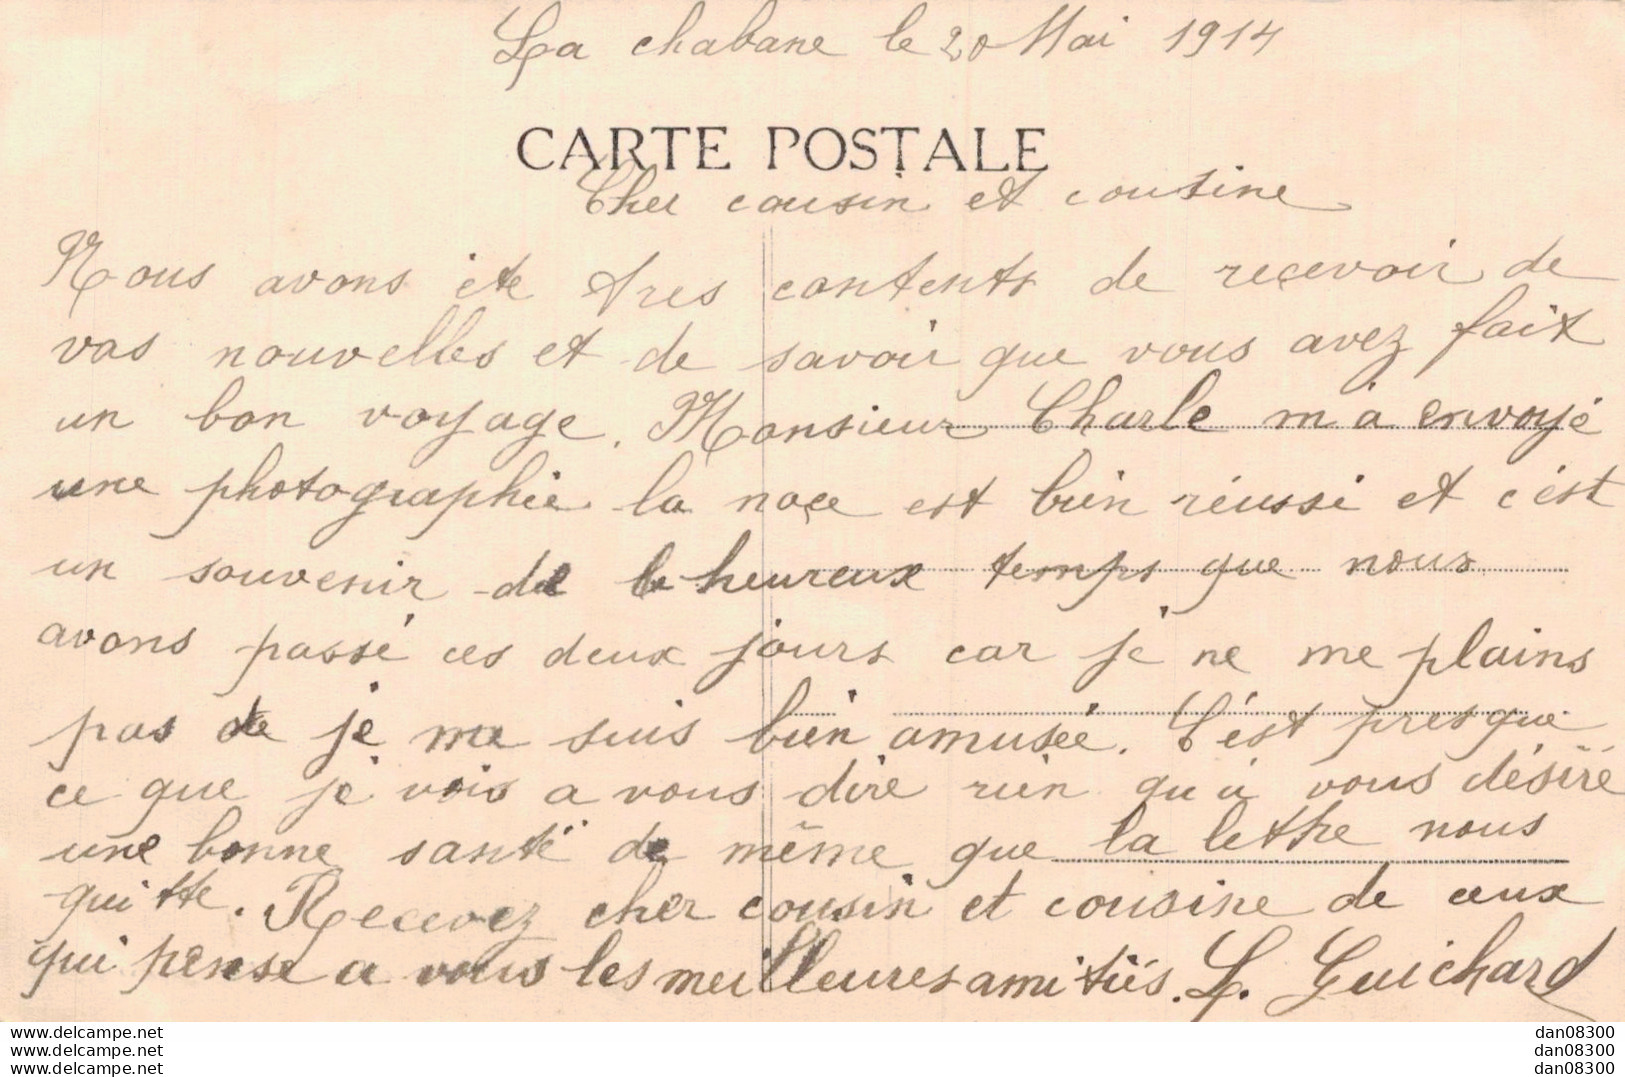 La chabane le 20 Mai 1914
CARTE POSTALE
Cher cousin et cousine
Nous avons été tres contents de recevoir de
vos nouvelles et de savoir que vous avez fait
un bon voyage. Monsieur Charle m'a envoyé
une photographie la noce est bien réussi et c'est
un souvenir de le heureux temps que nous
avons passé ces deux jours car je ne me plains
pas de je me suis bien amusée. C'est presque
ce que je vois a vous dire rien qu'a vous désiré
une bonne santé de même que la lethre nous
quitte. Recevez cher cousin et cousine de ceux
qui pense a vous les meilleures amitiés. L. Guichard
www.delcampe.net
www.delcampe.net
www.delcampe.net
dan08300
dan08300
dan08300